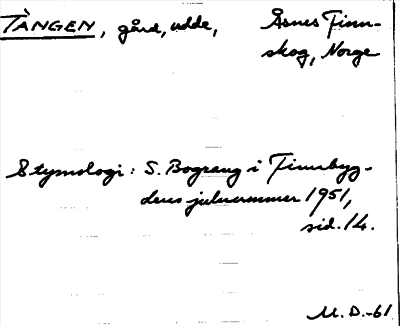 TÅNGEN, gård, udde, Åsnes Finn-
skog, Norge
Etymologi: S. Bograng i Finnbyg-
dens julnummer 1951,
sid. 14.
M. D.-61